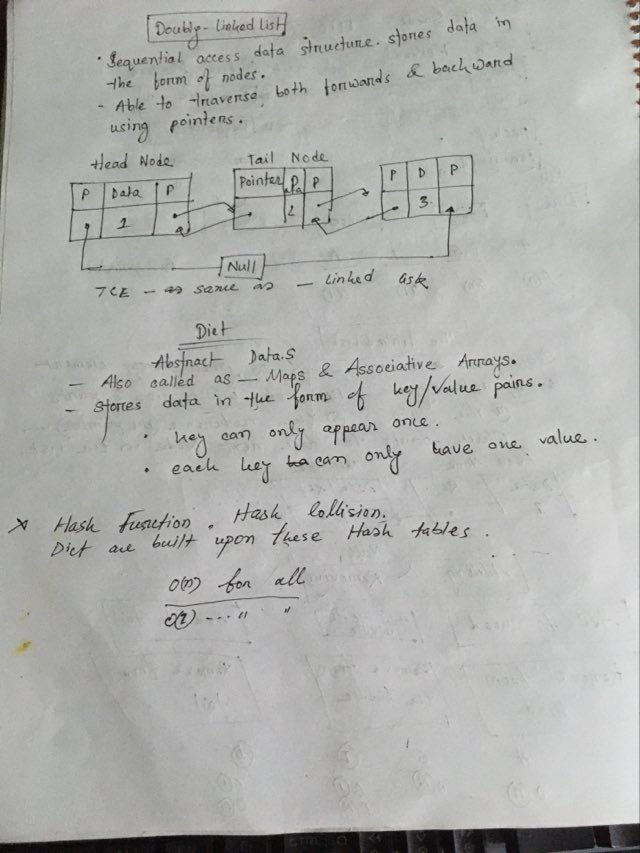 Doubly-Linked List
• Sequential access data structure. stores data in
the form of nodes.
- Able to traverse both forwards & backward
using pointers.
Head Node Tail Node
P Data P Pointer Data P P D P
1 2 3
Null
TCE - as same as - Linked
Dict
Abstract Data.S
- Also called as - Maps & Associative Arrays.
- stores data in the form of key/value pairs.
• key can only appear once.
• each key can only have one value.
Hash Function. Hash Collision.
Dict are built upon these Hash tables.
O(n) for all
O(1) --- " "